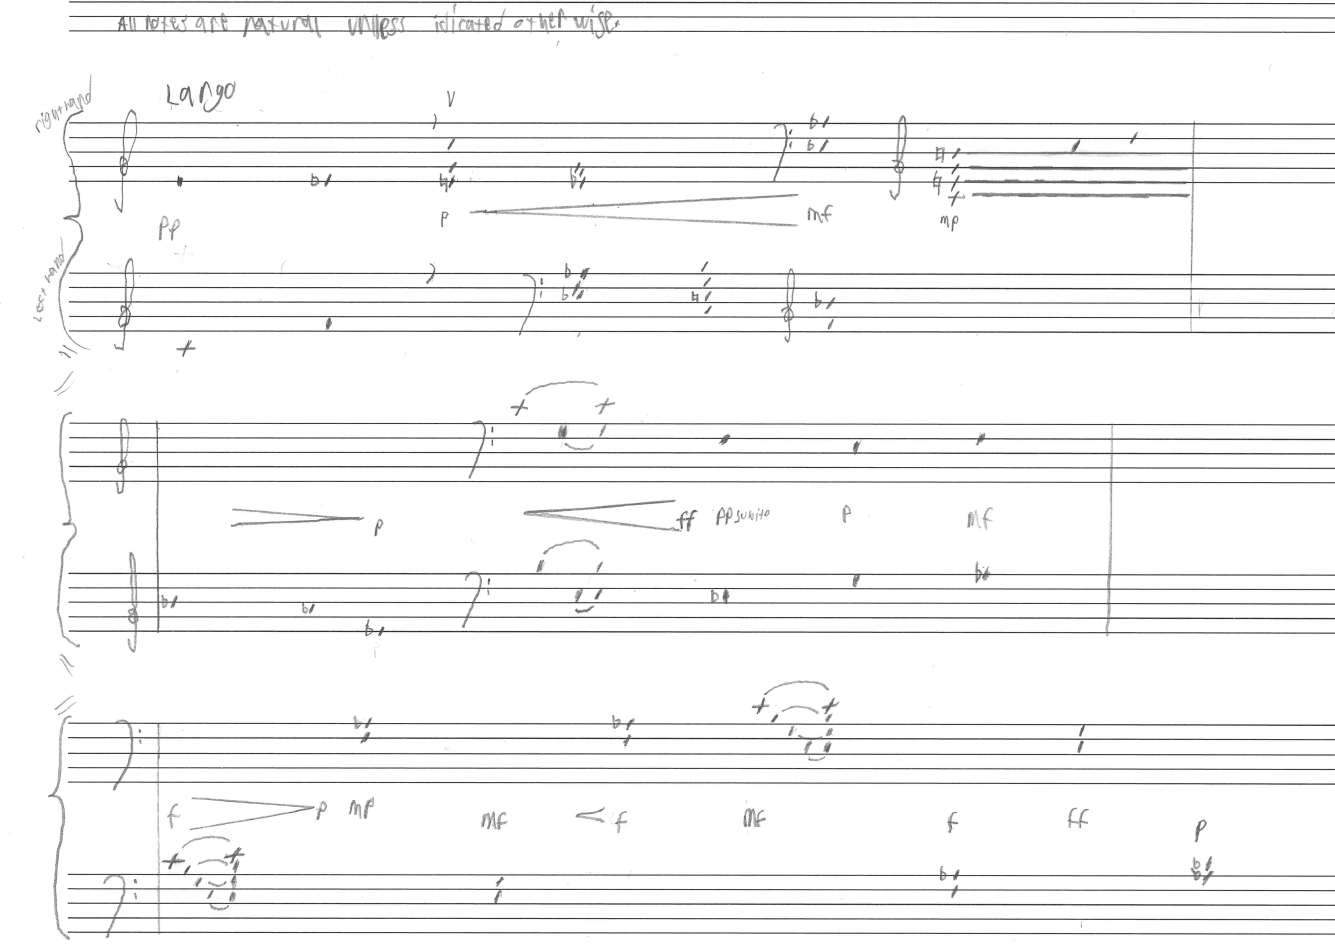 All notes are natural unless idicated otherwise.
Lango
right hand
p
mf
mp
pp
Left hand
p
ff pp subito p mf
f p mp mf f mf f ff p